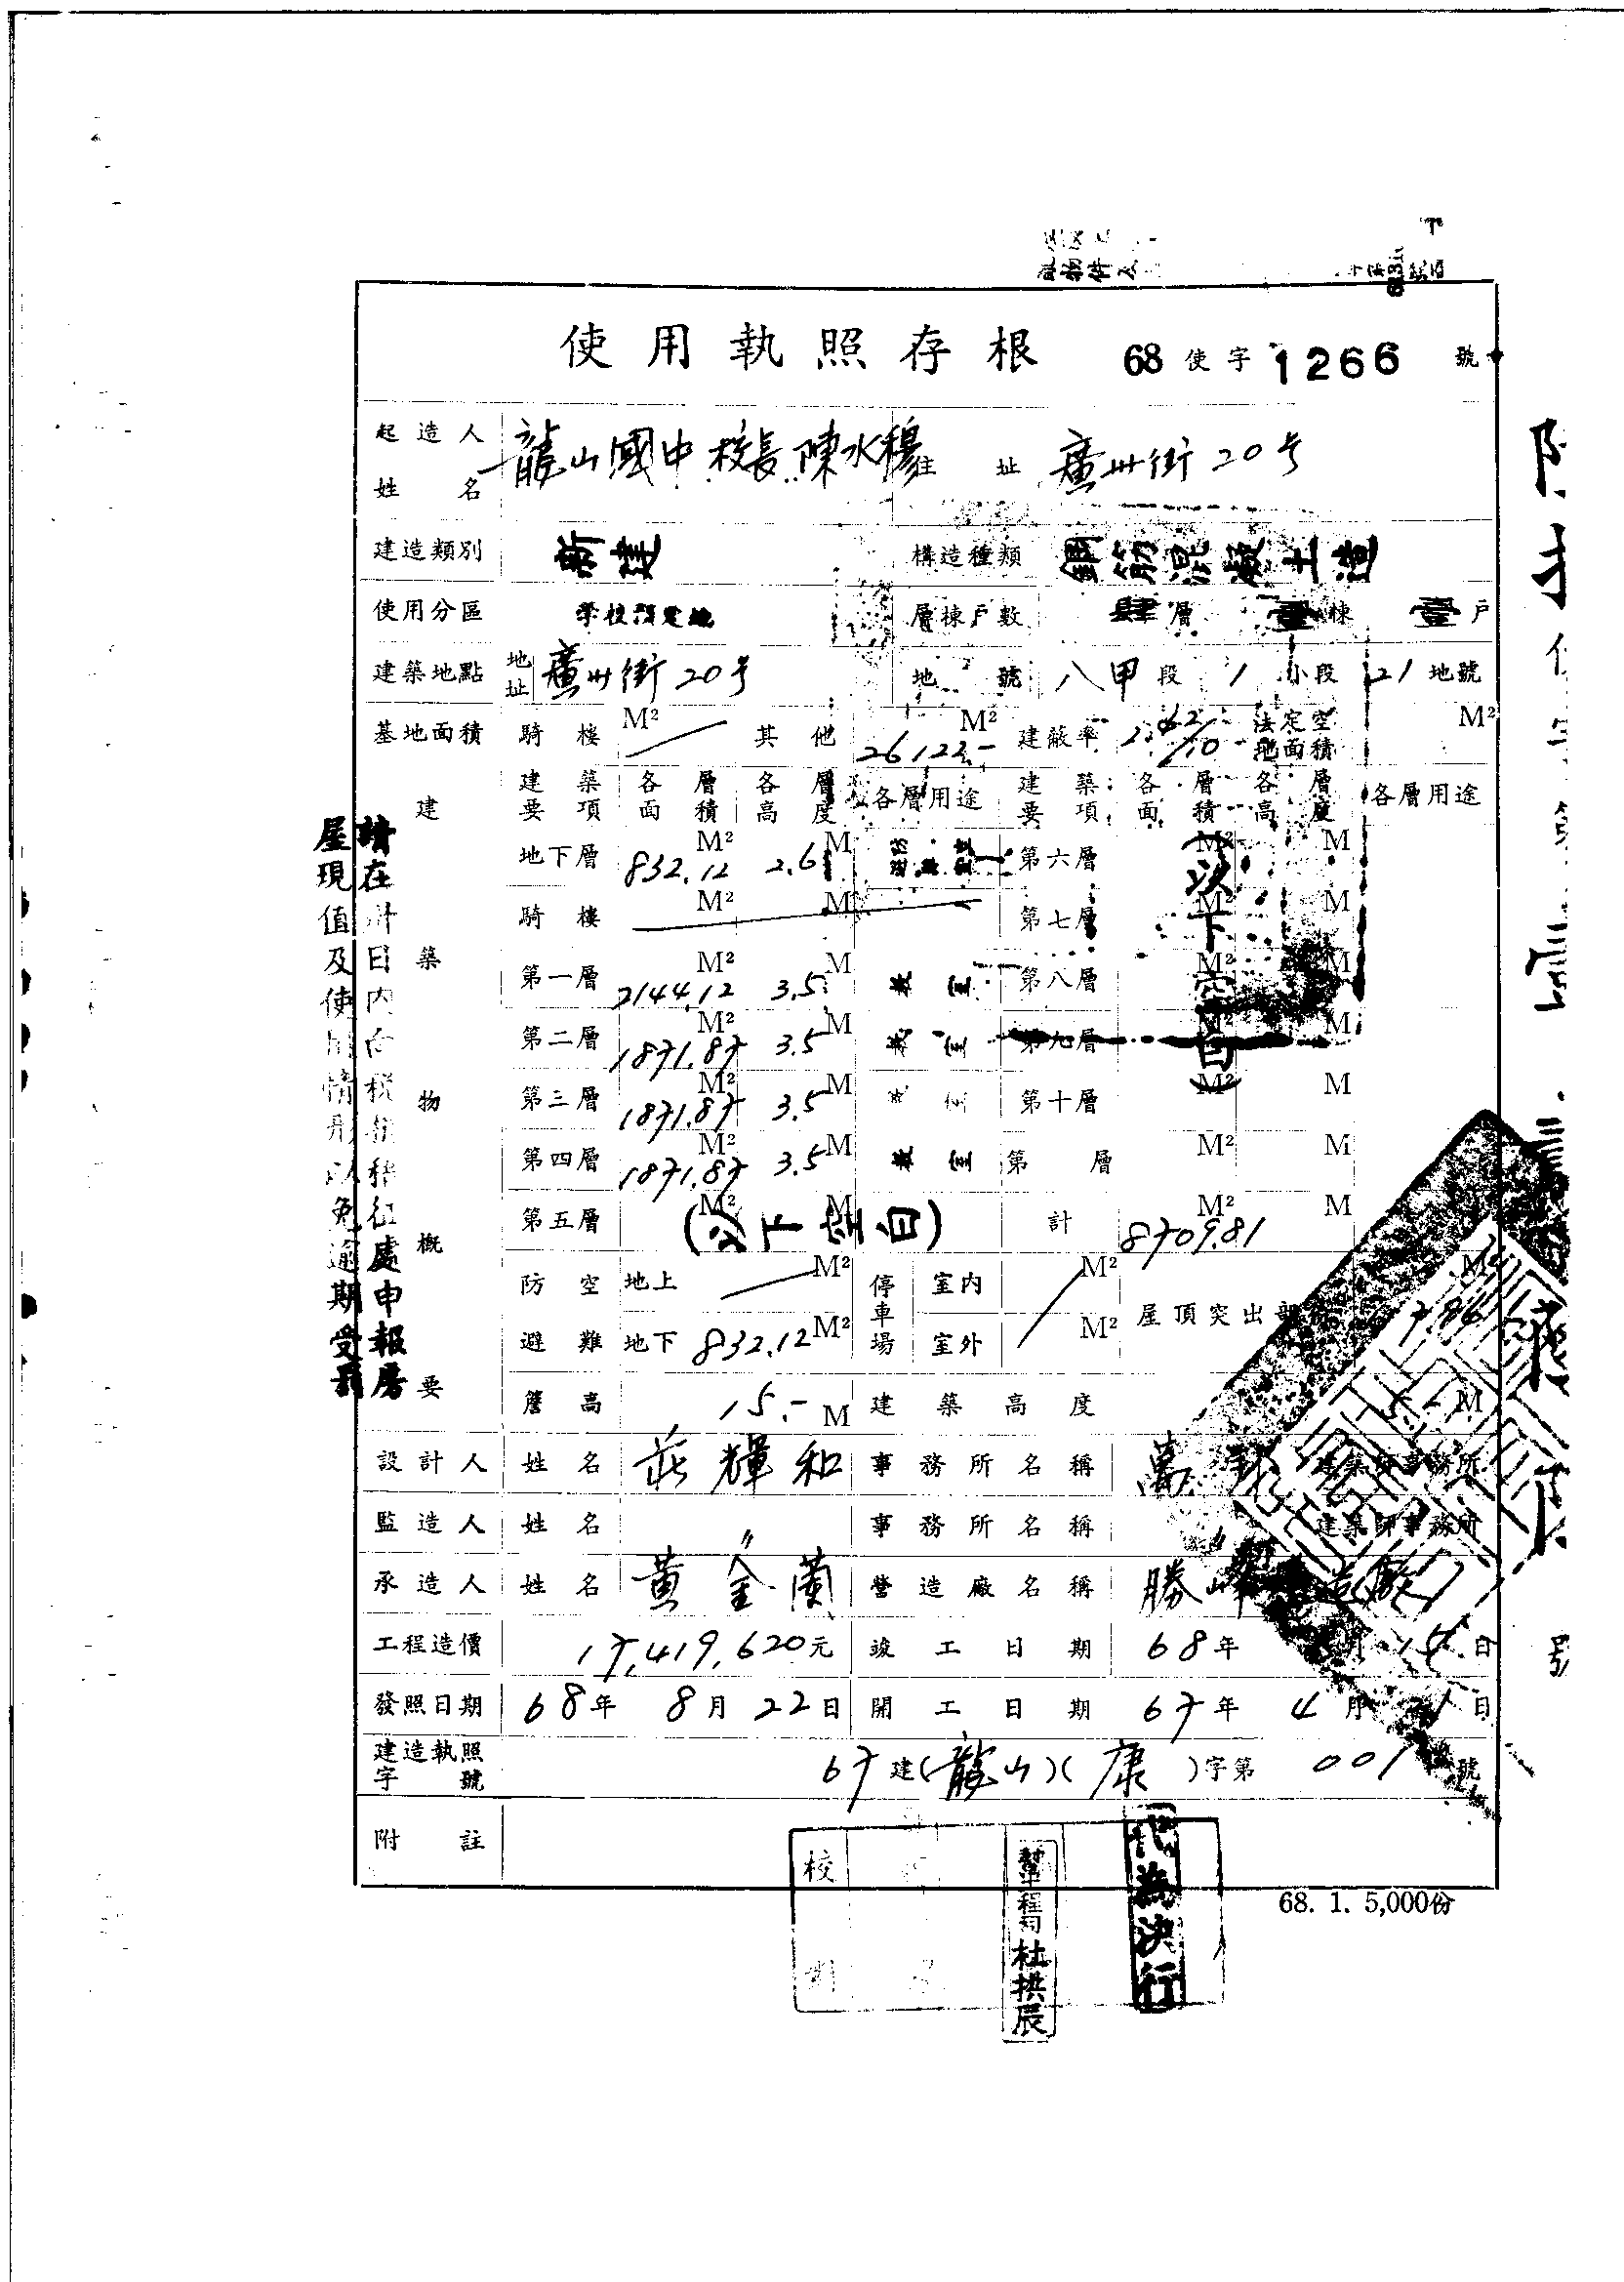 使用執照存根 68使字1266號
起造人姓名 龍山國中校長陳水穆 住址 廣州街20号
建造類別 新建 構造種類 鋼筋混凝土造
使用分區 学校預定地 層棟戶數 肆層 壹棟 壹戶
建築地點 地址 廣州街20号 地號 八甲段 1小段 21地號
基地面積 騎樓 M² 其他 26122.- M² 建蔽率 法定空地面積 M²
建築要項 各層面積 各層高度 各層用途 建築要項 各層面積 各層高度 各層用途
建築物概要
地下層 832.12 M² 2.6 M 第六層 M² M
騎樓 M² M 第七層 M² M
第一層 2144.12 M² 3.5 M 教室 第八層 M² M
第二層 1871.87 M² 3.5 M 教室 第九層 M² M
第三層 1871.87 M² 3.5 M 第十層 M² M
第四層 1871.87 M² 3.5 M 教室 第 層 M² M
第五層 M² M (以下空白) 計 8709.81 M² M
(以下空白)
防空避難 地上 M² 停車場 室內 M² 屋頂突出部
地下 832.12 M² 室外 M²
簷高 15.- M 建築高度 15.- M
設計人 姓名 莊輝和 事務所名稱 建築師事務所
監造人 姓名 〃 事務所名稱 〃 建築師事務所
承造人 姓名 黃金蘭 營造廠名稱 勝峰營造廠
工程造價 17,419,620元 竣工日期 68年 月15日
發照日期 68年8月22日 開工日期 67年4月21日
建造執照字號 67建(龍山)(康)字第001號
附註
校
對
杜拱辰
代為決行
68. 1. 5,000份
請在卅日內向稅捐稽征處申報房
屋現值及使用情形以免逾期受罰